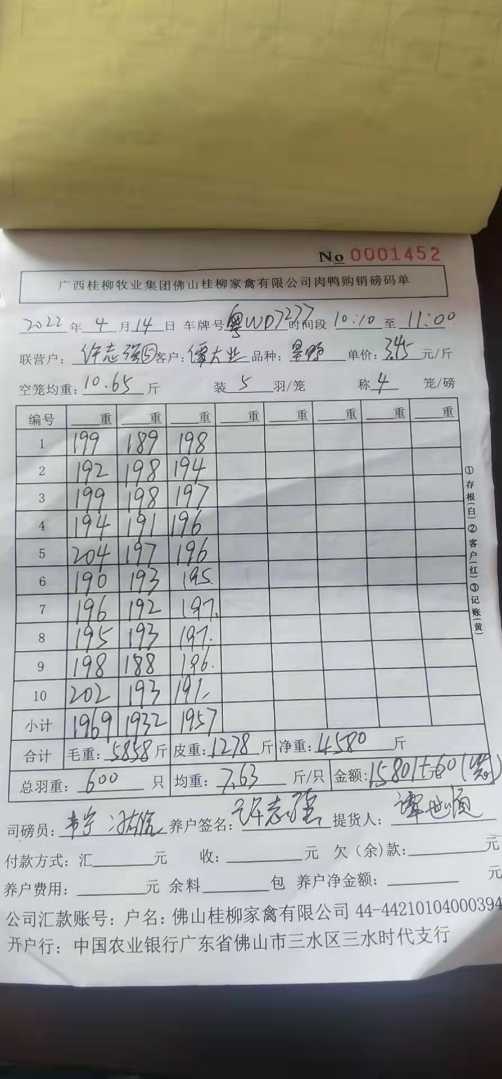 No 0001452
广西桂柳牧业集团佛山桂柳家禽有限公司肉鸭购销磅码单
2022 年 4 月 14 日 车牌号 粤WD7277 时间段 10:10 至 11:00
联营户: 许志强 客户: 谭大业 品种: 单价: 3.45 元/斤
空笼均重: 10.65 斤 装 5 羽/笼 称 4 笼/磅
编号 重 重 重 重 重 重 重 重
1 199 189 198
2 192 198 194
3 199 198 197
4 194 191 196
5 204 197 196
6 190 193 195
7 196 192 197
8 195 193 197
9 198 188 196
10 202 193 191
小计 1969 1932 1957
合计 毛重: 5858 斤 皮重: 1278 斤 净重: 4580 斤
总羽重: 600 只 均重: 7.63 斤/只 金额: 15801 元
司磅员: 养户签名: 许志强 提货人:
付款方式: 汇 元 收: 元 欠(余)款: 元
养户费用: 元 余料 包 养户净金额: 元
公司汇款账号: 户名: 佛山桂柳家禽有限公司 44-44210104000394
开户行: 中国农业银行广东省佛山市三水区三水时代支行
①存根(白)②客户(红)③记账(黄)